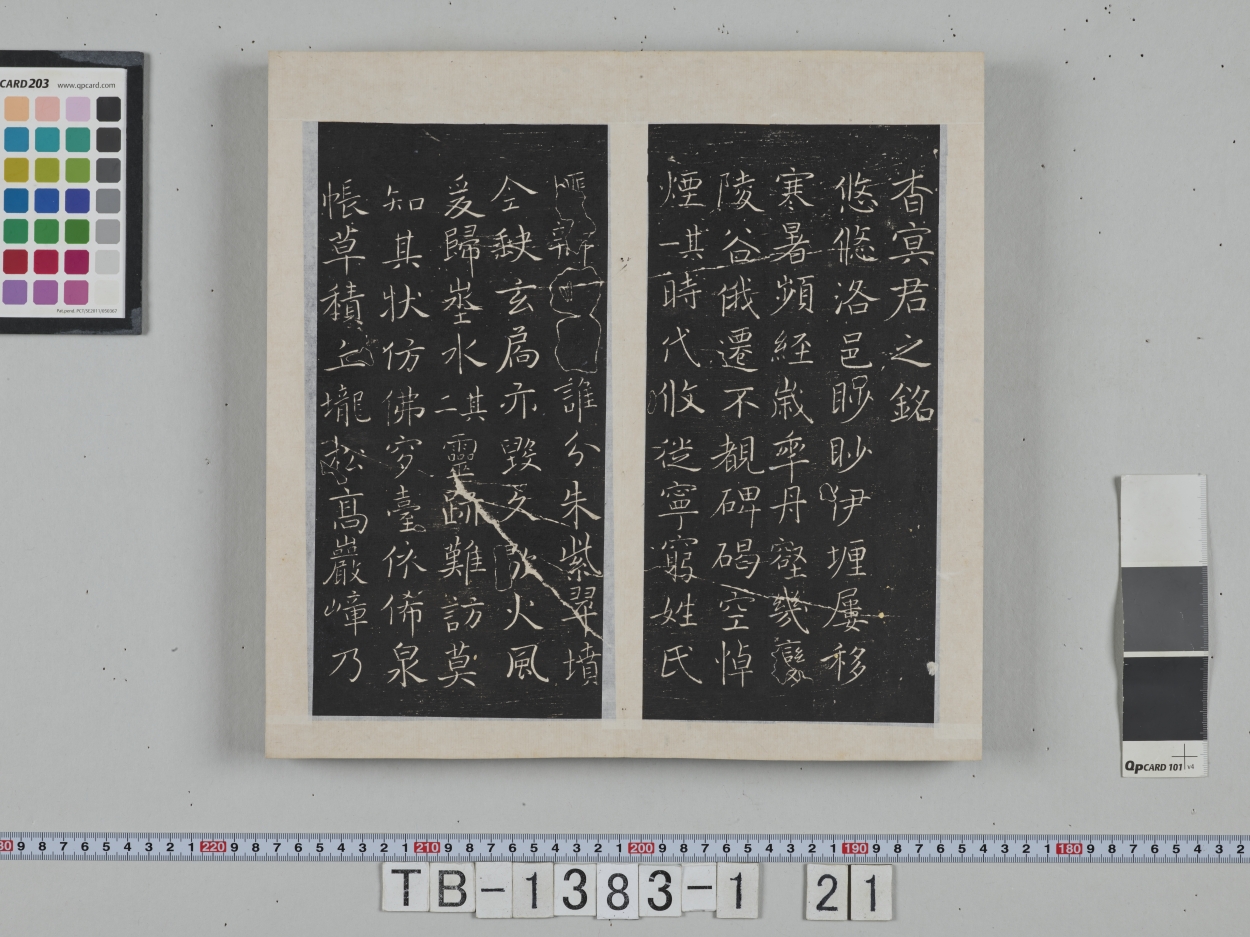 杳冥君之銘
悠悠洛邑眇眇伊壥屢移
寒暑頻經歲年丹壑幾變
陵谷俄遷不覩碑碣空悼
煙其一時代攸徙寧窮姓氏
誰分朱紫翠墳
全缺玄扃亦毀久火風
爰歸埊水其二靈跡難訪莫
知其狀仿佛穸臺依俙泉
帳草積丘壠松高巖嶂乃
CARD 203 www.qpcard.com
QpCARD 101 v4
30 9 8 7 6 5 4 3 2 1 220 9 8 7 6 5 4 3 2 1 210 9 8 7 6 5 4 3 2 1 200 9 8 7 6 5 4 3 2 1 190 9 8 7 6 5 4 3 2 1 180 9 8 7 6 5 4 3 2
TB-1383-1 21